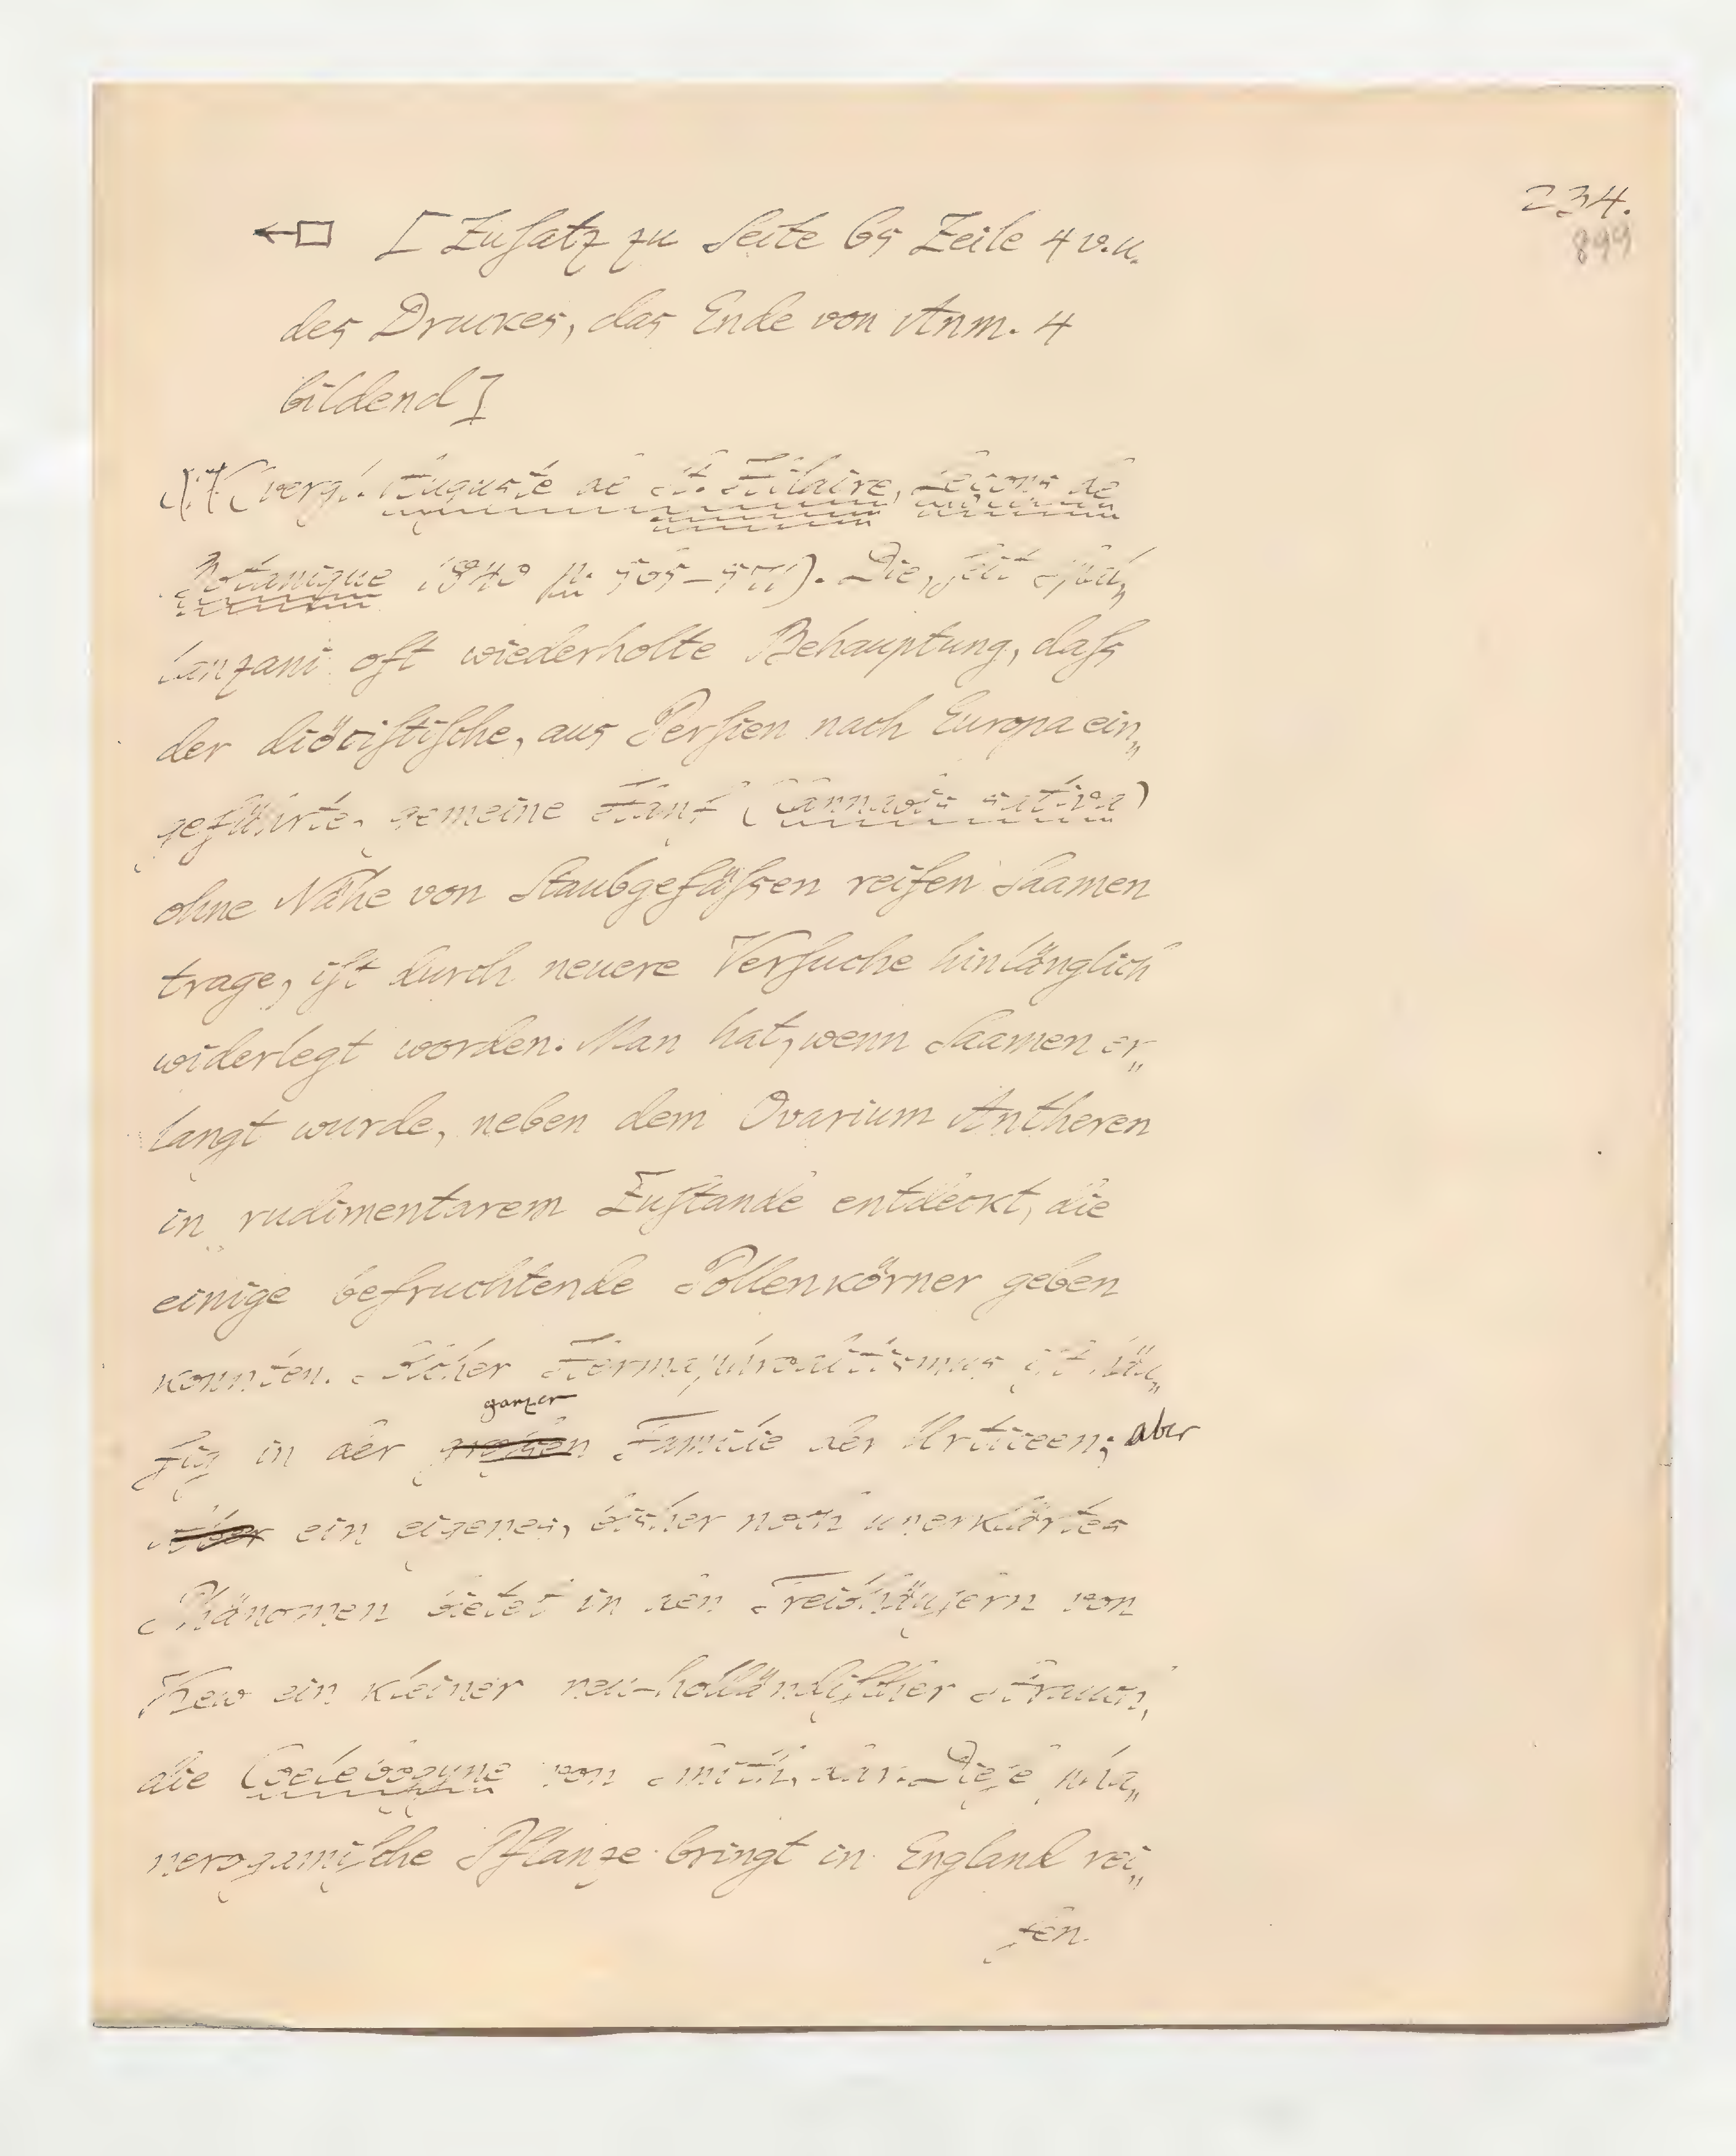 234.
899
[Zusatz zu Seite 65 Zeile 4 v.u.
des Druckes, das Ende von Anm. 4
bildend]
(vergl. Auguste de St. Hilaire, Leçons de
Botanique 1840 p. 565–571). Die, seit Spal„
lanzani oft wiederholte Behauptung, daſs
der diöcistische, aus Persien nach Europa ein„
geführte, gemeine Hanf (Cannabis sativa)
ohne Nähe von Staubgefäſsen reifen Saamen
trage, ist durch neuere Versuche hinlänglich
widerlegt worden. Man hat, wenn Saamen er„
langt wurde, neben dem Ovarium Antheren
in rudimentarem Zustande entdeckt, die
einige befruchtende Pollenkörner geben
konnten. Solcher Hermaphroditismus ist häu„
ganzen
fig in der groſsen Familie der Urticeen; aber
aber ein eigenes, bisher noch unerklärtes
Phänomen bietet in den Treibhäusern von
Kew ein kleiner neu-holländischer Strauch,
die Coelebogyne von Smith, dar. Diese pha„
nerogamische Pflanze bringt in England rei„
fen.